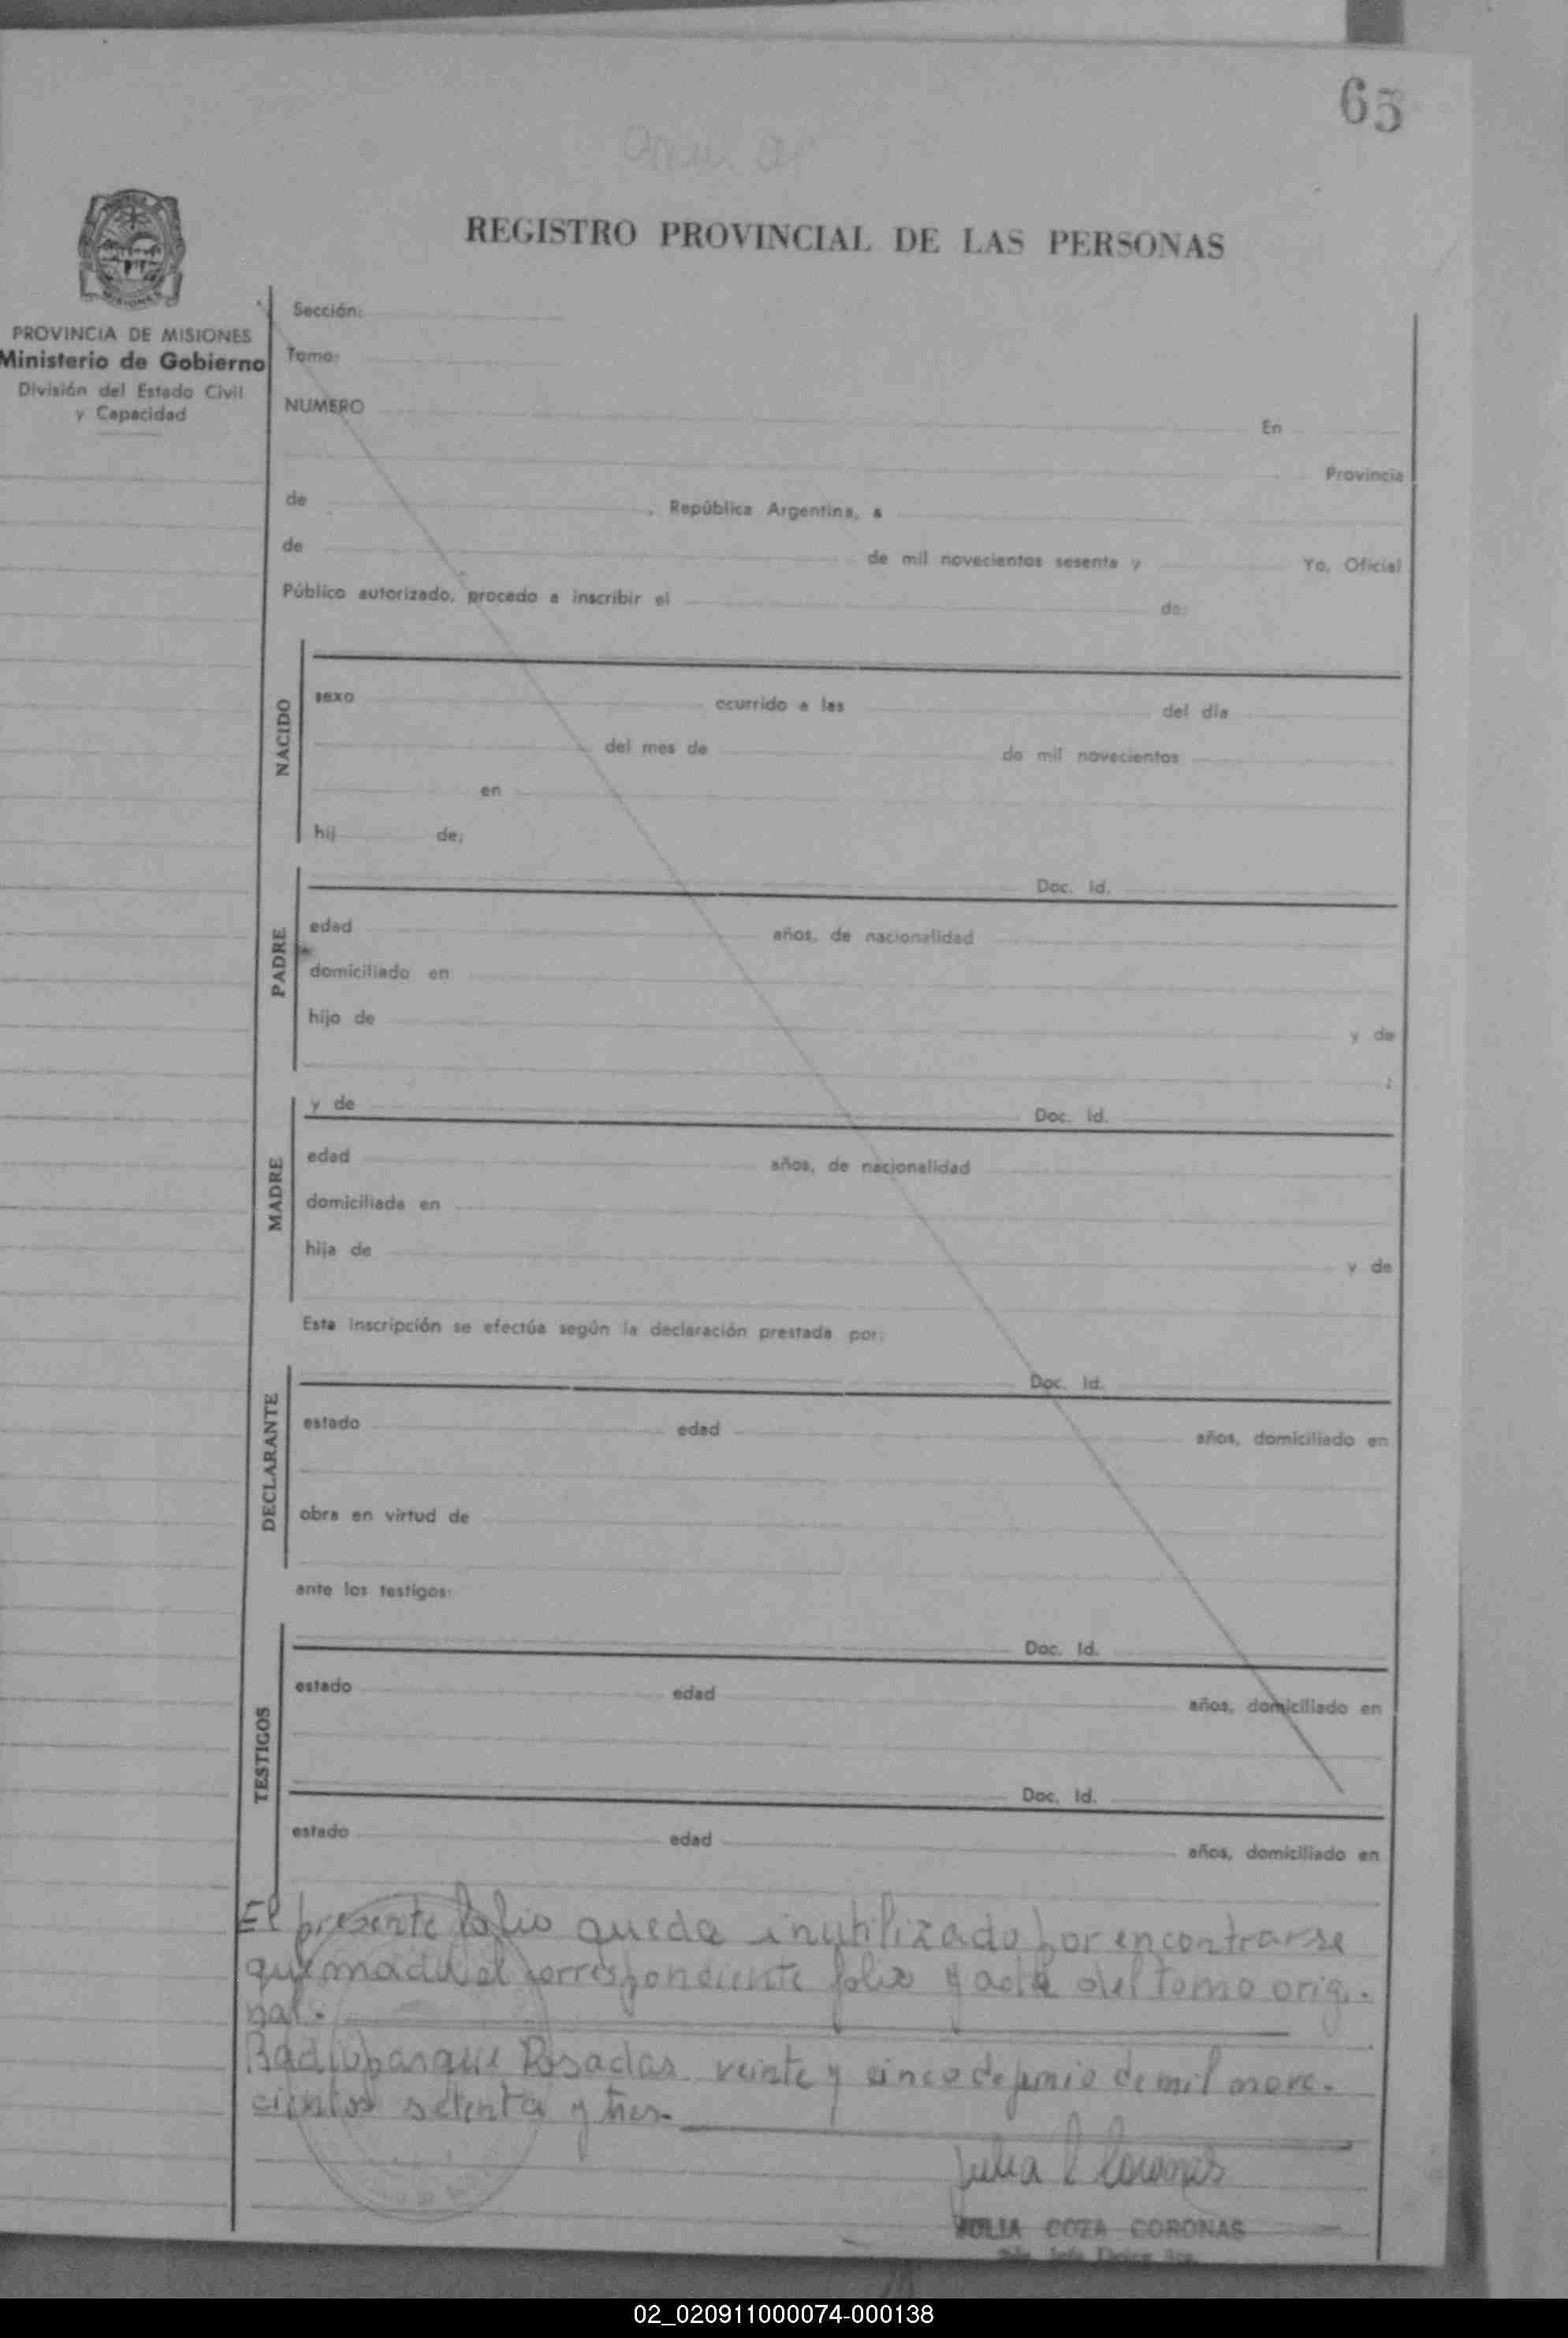 65
REGISTRO PROVINCIAL DE LAS PERSONAS
MISIONES
PROVINCIA DE MISIONES
Ministerio de Gobierno
División del Estado Civil
y Capacidad
Sección:
Tomo:
NUMERO En
Provincia
de , República Argentina, a
de de mil novecientos sesenta y Yo, Oficial
Público autorizado, procedo a inscribir el de:
NACIDO
sexo ocurrido a las del día
del mes de de mil novecientos
en
hij de:
PADRE
Doc. Id.
edad años, de nacionalidad
domiciliado en
hijo de y de
;
MADRE
y de Doc. Id.
edad años, de nacionalidad
domiciliada en
hija de y de
Esta inscripción se efectúa según la declaración prestada por:
DECLARANTE
Doc. Id.
estado edad años, domiciliado en
obra en virtud de
ante los testigos:
TESTIGOS
Doc. Id.
estado edad años, domiciliado en
Doc. Id.
estado edad años, domiciliado en
El presente folio queda inutilizado por encontrarse
quemado el correspondiente folio y acta del tomo origi-
nal.
Posadas veinte y cinco de junio de mil nove-
cientos setenta y tres.
Julia C Coronas
JULIA COZA CORONAS
02_020911000074-000138